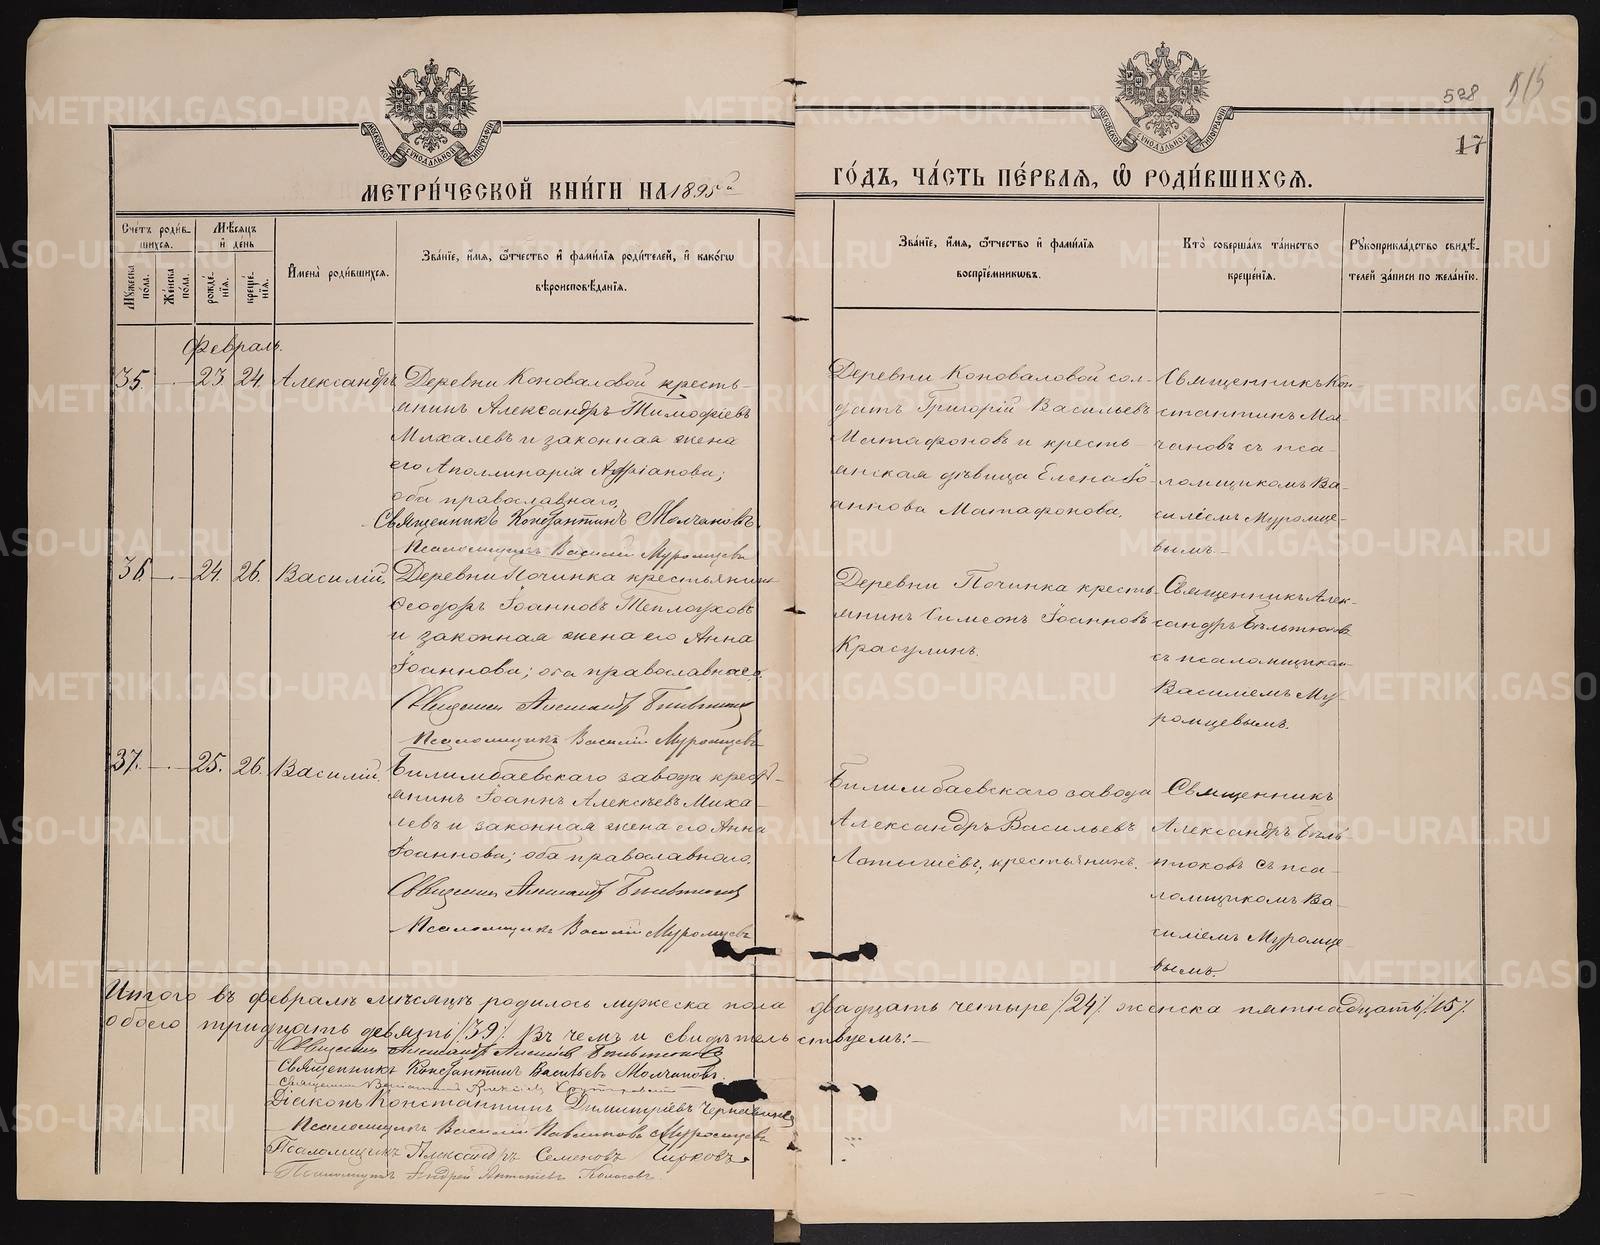 598
515
17
МОСКОВСКОЙ СУНОДАЛЬНОЙ ТИПОГРАФІИ
МОСКОВСКОЙ СУНОДАЛЬНОЙ ТИПОГРАФІИ
МЕТРИ́ЧЕСКОЙ КНИ́ГИ НА 1895й ГО́ДЪ, ЧА́СТЬ ПЕ́РВАЯ, Ѡ РОДИ́ВШИХСЯ.
Сче́тъ роди́в-
шихся.
Мꙋ́жеска по́ла.
Же́нска по́ла.
Мѣ́сяцъ и҆ де́нь
рожде́-нїя.
креще́-нїя.
И҆мена̀ роди́вшихся.
Зва́нїе, и҆́мя, ѻ҆́тчество и҆ фами́лїя роди́телей, и҆ како́гѡ
вѣроисповѣ́данїя.
Зва́нїе, и҆́мя, ѻ҆́тчество и҆ фами́лїя
воспрїе́мникѡвъ.
Кто̀ соверша́лъ та́инство
креще́нїя.
Рꙋкоприкла́дство свидѣ́-
телей за́писи по жела́нїю.
Февраль.
35. — 23. 24. Александръ
Деревни Коноваловой кресть-
янинъ Александръ Тимофіевъ
Михалевъ и законная жена
его Аполлинарія Адріанова;
оба православнаго.
Священникъ Константинъ Молчановъ.
Псаломщикъ Василій Муромцевъ
Деревни Коноваловой сол-
датъ Григорій Васильевъ
Матафоновъ и кресть-
янская дѣвица Елена Іо-
аннова Матафонова.
Священникъ Кон-
стантинъ Мол-
чановъ съ пса-
ломщикомъ Ва-
силіемъ Муромце-
вымъ.
36. — 24. 26. Василій.
Деревни Починка крестьянинъ
Ѳеодоръ Іоанновъ Теплоуховъ
и законная жена его Анна
Іоаннова; оба православнаго.
Священникъ Александръ Бѣльтюковъ
Псаломщикъ Василій Муромцевъ
Деревни Починка кресть-
янинъ Симеонъ Іоанновъ
Красулинъ.
Священникъ Алек-
сандръ Бѣльтюковъ
съ псаломщикомъ
Василіемъ Му-
ромцевымъ.
37. — 25. 26. Василій.
Билимбаевскаго завода крест-
янинъ Іоаннъ Алексѣевъ Миха-
левъ и законная жена его Анна
Іоаннова; оба православнаго.
Священникъ Александръ Бѣльтюковъ
Псаломщикъ Василій Муромцевъ
Билимбаевскаго завода
Александръ Васильевъ
Латышевъ, крестьянинъ.
Священникъ
Александръ Бѣль-
тюковъ съ пса-
ломщикомъ Ва-
силіемъ Муромце-
вымъ.
Итого въ февралѣ мѣсяцѣ родилось мужеска пола двадцать четыре /24/. женска пятнадцать /15/.
обоего тридцать девять /39/. Въ чемъ и свидѣтельствуемъ:—
Священникъ Александръ Алексѣевъ Бѣльтюковъ
Священникъ Константинъ Васильевъ Молчановъ.
Діаконъ Константинъ Димитріевъ Чернавинъ
Псаломщикъ Василій Павлиновъ Муромцевъ
Псаломщикъ Александръ Семеновъ Чирковъ
Псаломщикъ Андрей Антоніевъ Колосовъ.
METRIKI.GASO-URAL.RU